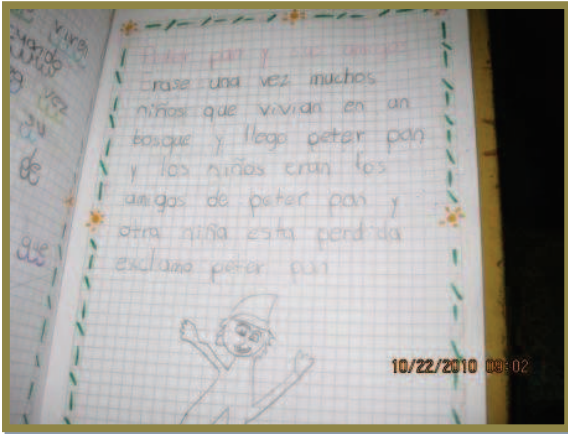 Peter pan y sus amigos
Erase una vez muchos
niños que vivian en un
bosque y llego peter pan
y los niños eran los
amigos de peter pan y
otra niña esta perdida
exclamo peter pan
10/22/2010 09:02